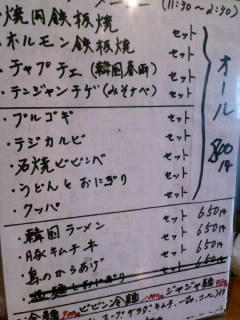 (11:30~2:30)
・焼肉鉄板焼 セット
・ホルモン鉄板焼 セット
・チャプチェ(韓国春雨) セット
・テンジャンチゲ(みそなべ) セット
・プルコギ セット
・テジカルビ セット
・石焼ビビンバ セット
・うどんとおにぎり セット
・クッパ セット
オール 800円
・韓国ラーメン セット 650円
・豚キムチ丼 セット 650円
・鳥のからあげ セット 650円
セット 650円
冷麺 900 ビビン冷麺 ジャジャ麺